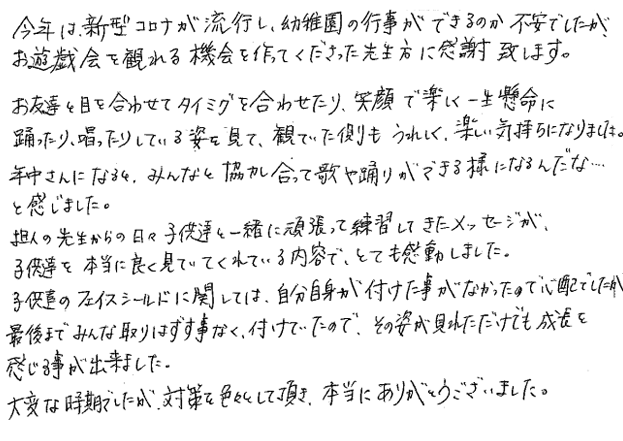 今年は、新型コロナが流行し、幼稚園の行事ができるのか不安でしたが、
お遊戯会を観れる機会を作ってくださった先生方に感謝致します。
お友達と目を合わせてタイミグを合わせたり、笑顔で楽しく一生懸命に
踊ったり、唱ったりしている姿を見て、観ていた側もうれしく、楽しい気持ちになりました。
年中さんになると、みんなと協力し合って歌や踊りができる様になるんだな…
と感じました。
担人の先生からの日々子供達と一緒に頑張って練習してきたメッセージが、
子供達を本当に良く見ていてくれている内容で、とても感動しました。
子供達のフェイスシールドに関しては、自分自身が付けた事がなかったので心配でしたが
最後までみんな取りはずす事なく、付けていたので、その姿が見れただけでも成長を
感じる事が出来ました。
大変な時期でしたが、対策を色々として頂き、本当にありがとうございました。